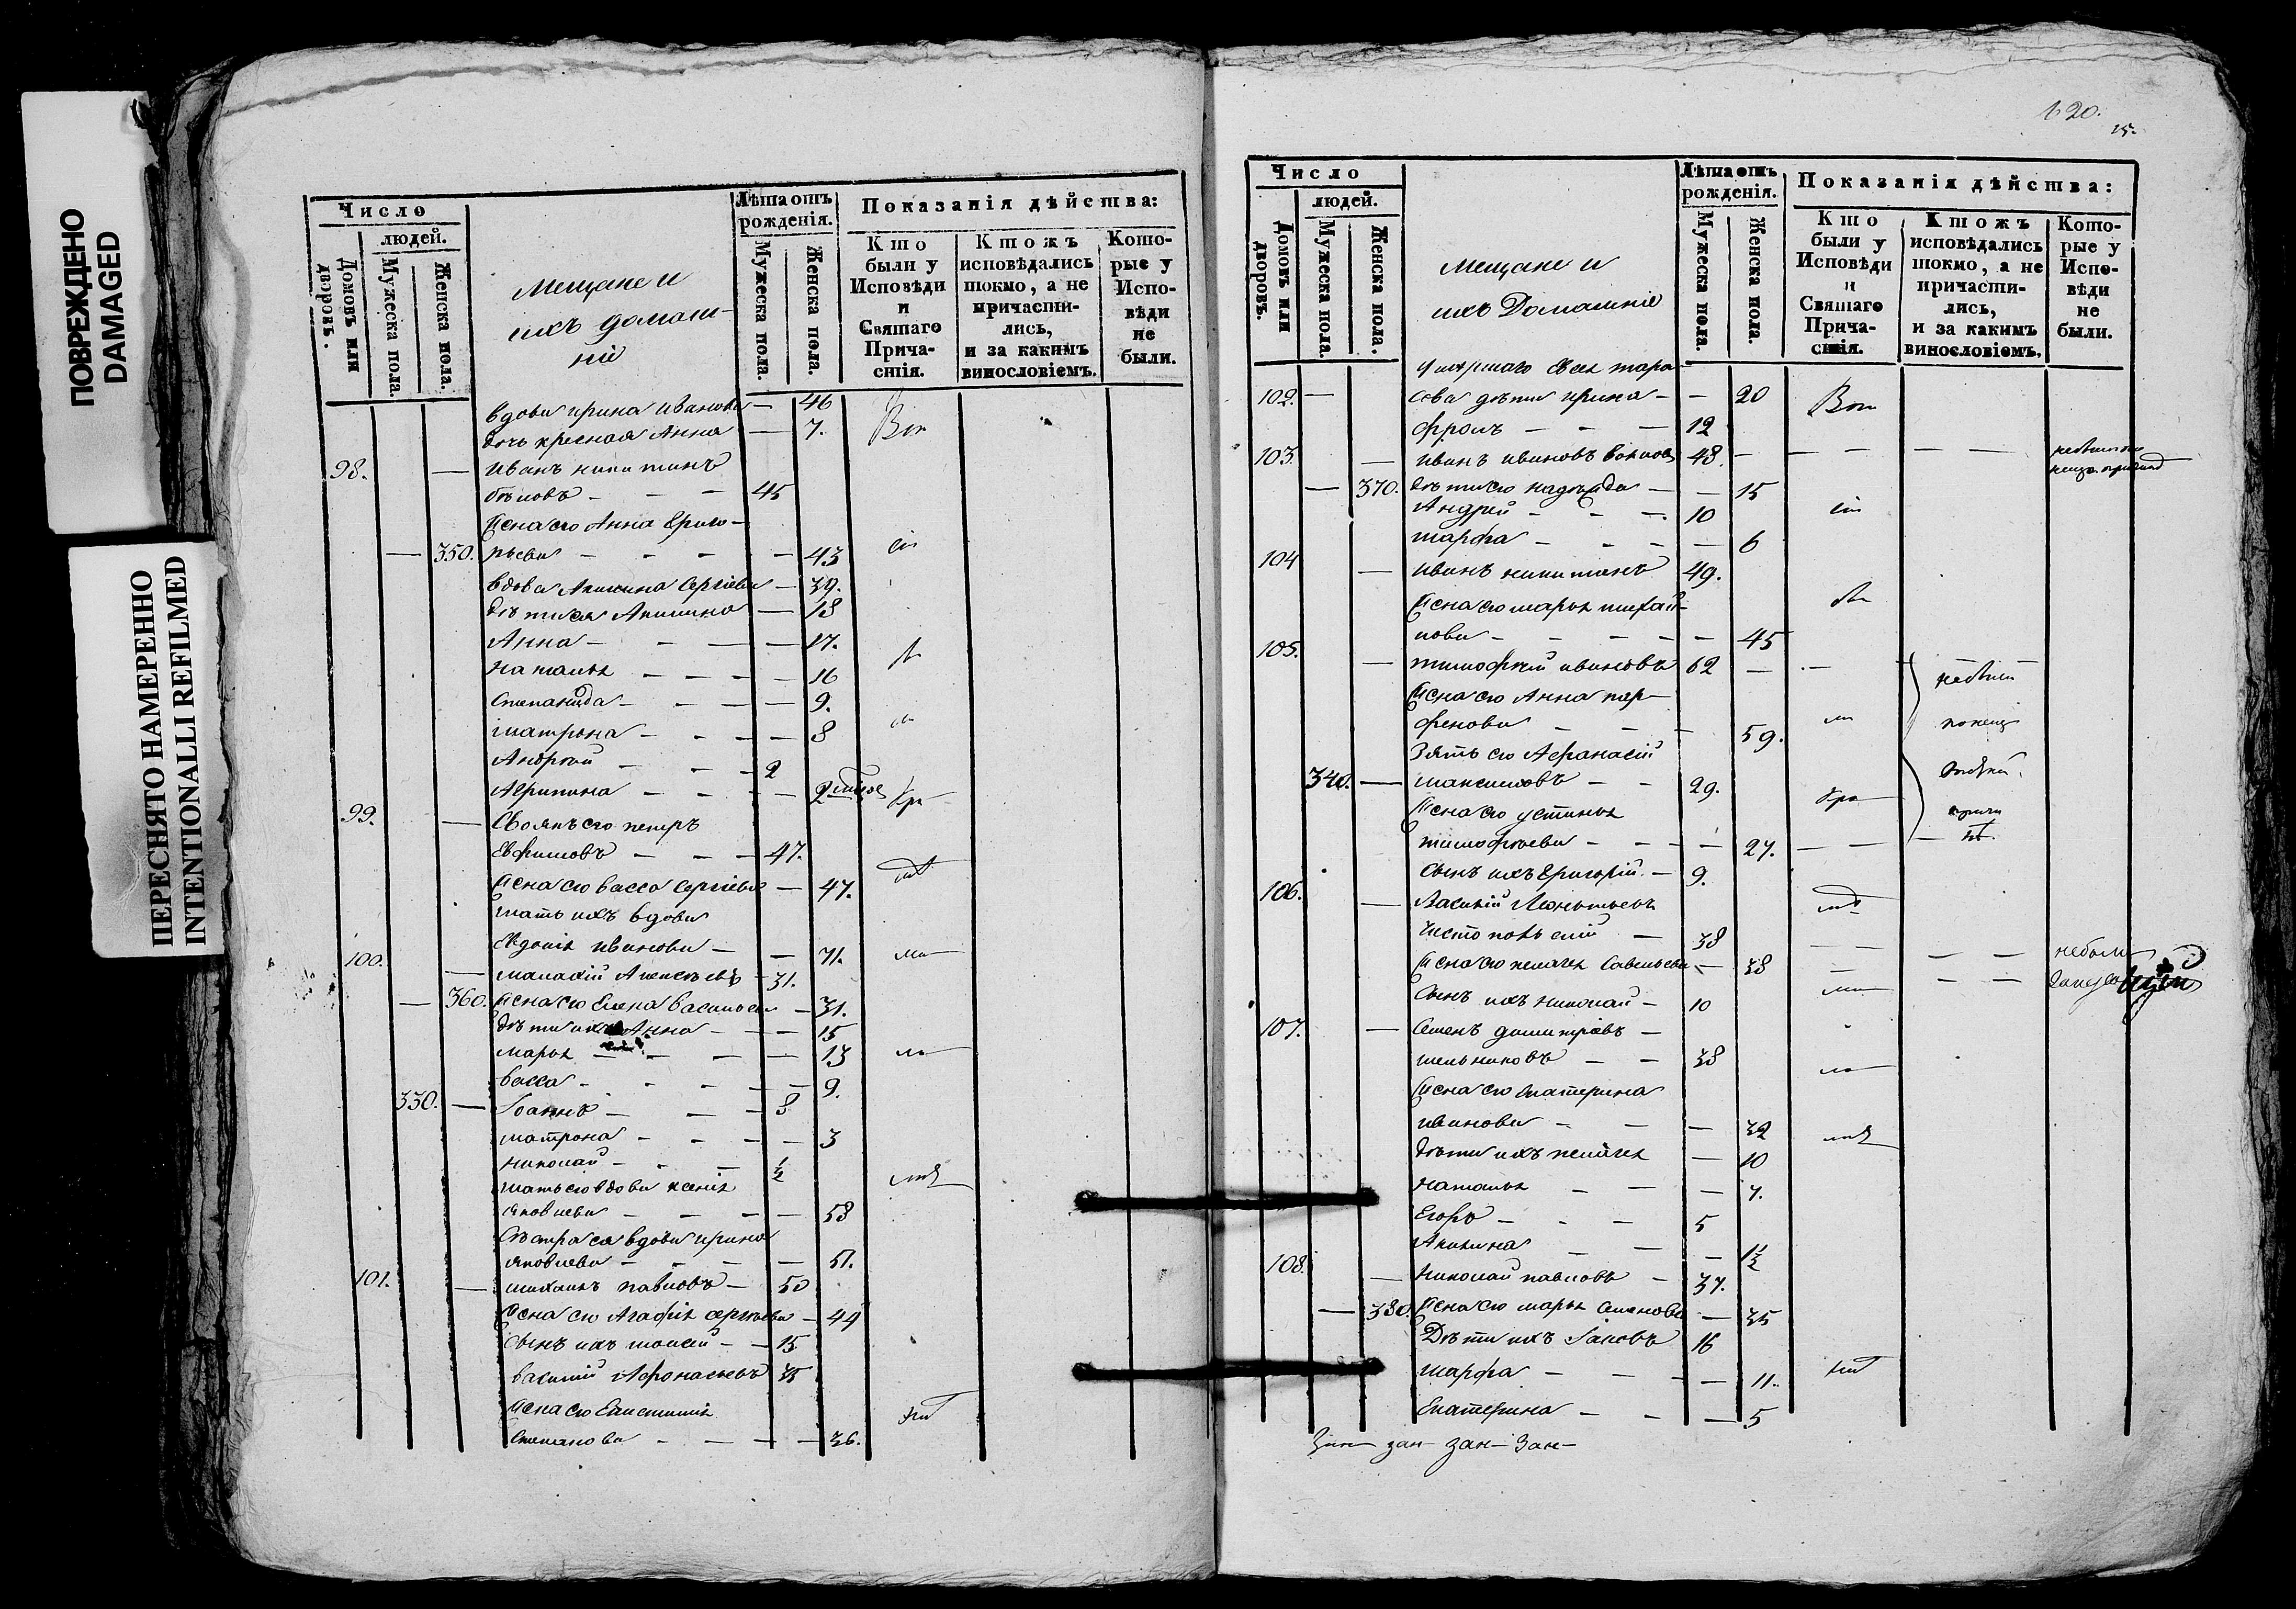 ПОВРЕЖДЕНО
DAMAGED
ПЕРЕСНЯТО НАМЕРЕННО
INTENTIONALLI REFILMED
Число
людей.
Домовъ или дворовъ.
Мужеска пола.
Женска пола.
Мещане и
ихъ домаш-
ніе
Лѣта отъ рожденія.
Мужеска пола.
Женска пола.
Показанія дѣйства:
Кто были у Исповѣди и Святаго Прича-стія.
Ктожъ исповѣдались токмо, а не причасти-лись, и за какимъ винословіемъ.
Кото-рые у Испо-вѣди не были.
вдова ирина иванова — 46
дочь кресная Анна — 7. Вси
98. — иванъ никитинъ
бѣловъ — — — 45
Жена его Анна Григо-
— 350. рьева — — — — 43
вдова Акилина Сергіева — 39.
дѣти ея Акилина — 18
Анна — — — — 17.
наталья — — — — 16
степанида — — — — 9.
матрона — — — — 8
Андрей — — — 2
Агрипина — — — — 2
99. — Своякъ его петръ
Евфимовъ — — — 47.
Жена его васса Сергіева — 47.
мать ихъ вдова
Евдокія иванова — — 71.
100. — малахій Алексѣевъ — 31.
— 360. Жена его Елена васильева — 31.
дѣти ихъ Анна — — — 15
марья — — — — 13
васса — — — — — 9.
330. — Іоаннъ — — — 8
матрона — — — — 3
николай — — — 1/2
мать его вдова ксенія
яковлева — — — — 58
Сестра ея вдова ирина
яковлева — — — — 51.
101. — михаилъ павловъ — 50
Жена его Агафія сергѣева — 44
Сынъ ихъ моисей — — 15
василій Афонасьевъ 35
Жена его
Степанова — — — — 36.
120.
15.
Число
людей.
Домовъ или дворовъ.
Мужеска пола.
Женска пола.
Мещане и
ихъ Домашніе
Лѣта отъ рожденія.
Мужеска пола.
Женска пола.
Показанія дѣйства:
Кто были у Исповѣди и Святаго Прича-стія.
Ктожъ исповѣдались токмо, а не причасти-лись, и за какимъ винословіемъ.
Кото-рые у Испо-вѣди не были.
Умершаго тара-
102. — сова дѣти ирина — — 20 Вси
фролъ — — — 12
103. — иванъ ивановъ 48. — — — — —
— 370. дѣти его надежда — — 15
Андрей — — — 10
марфа — — — — 6
104 — иванъ никитинъ 49.
Жена его марья михай-
лова — — — — — 45
105. — тимофей ивановъ 62 — —
Жена его Анна пар-
фенова — — — 59.
Зять его Афанасій
340. — максимовъ — — 29.
Жена его устинья
тимофѣева — — — — 27. — —
Сынъ ихъ Григорій — 9.
106. — Василій Леонтьевъ
— 38 — — — — небыли
Жена его пелагея Савельева — 38 — — —
Сынъ ихъ николай — 10
107. — Семенъ димитріевъ —
мельниковъ — — 38
Жена его Катерина
иванова — — — 32
дѣти ихъ пелагея — 10
наталья — — — 7.
Егоръ — — — 5
Акилина — — — 1 1/2
108. — Николай павловъ — 37.
— 380. Жена его марья Семенова — 35
Дѣти ихъ Іаковъ 16
марфа — — — — 11.
Екатерина — — — 5
зан— зан— Зан—